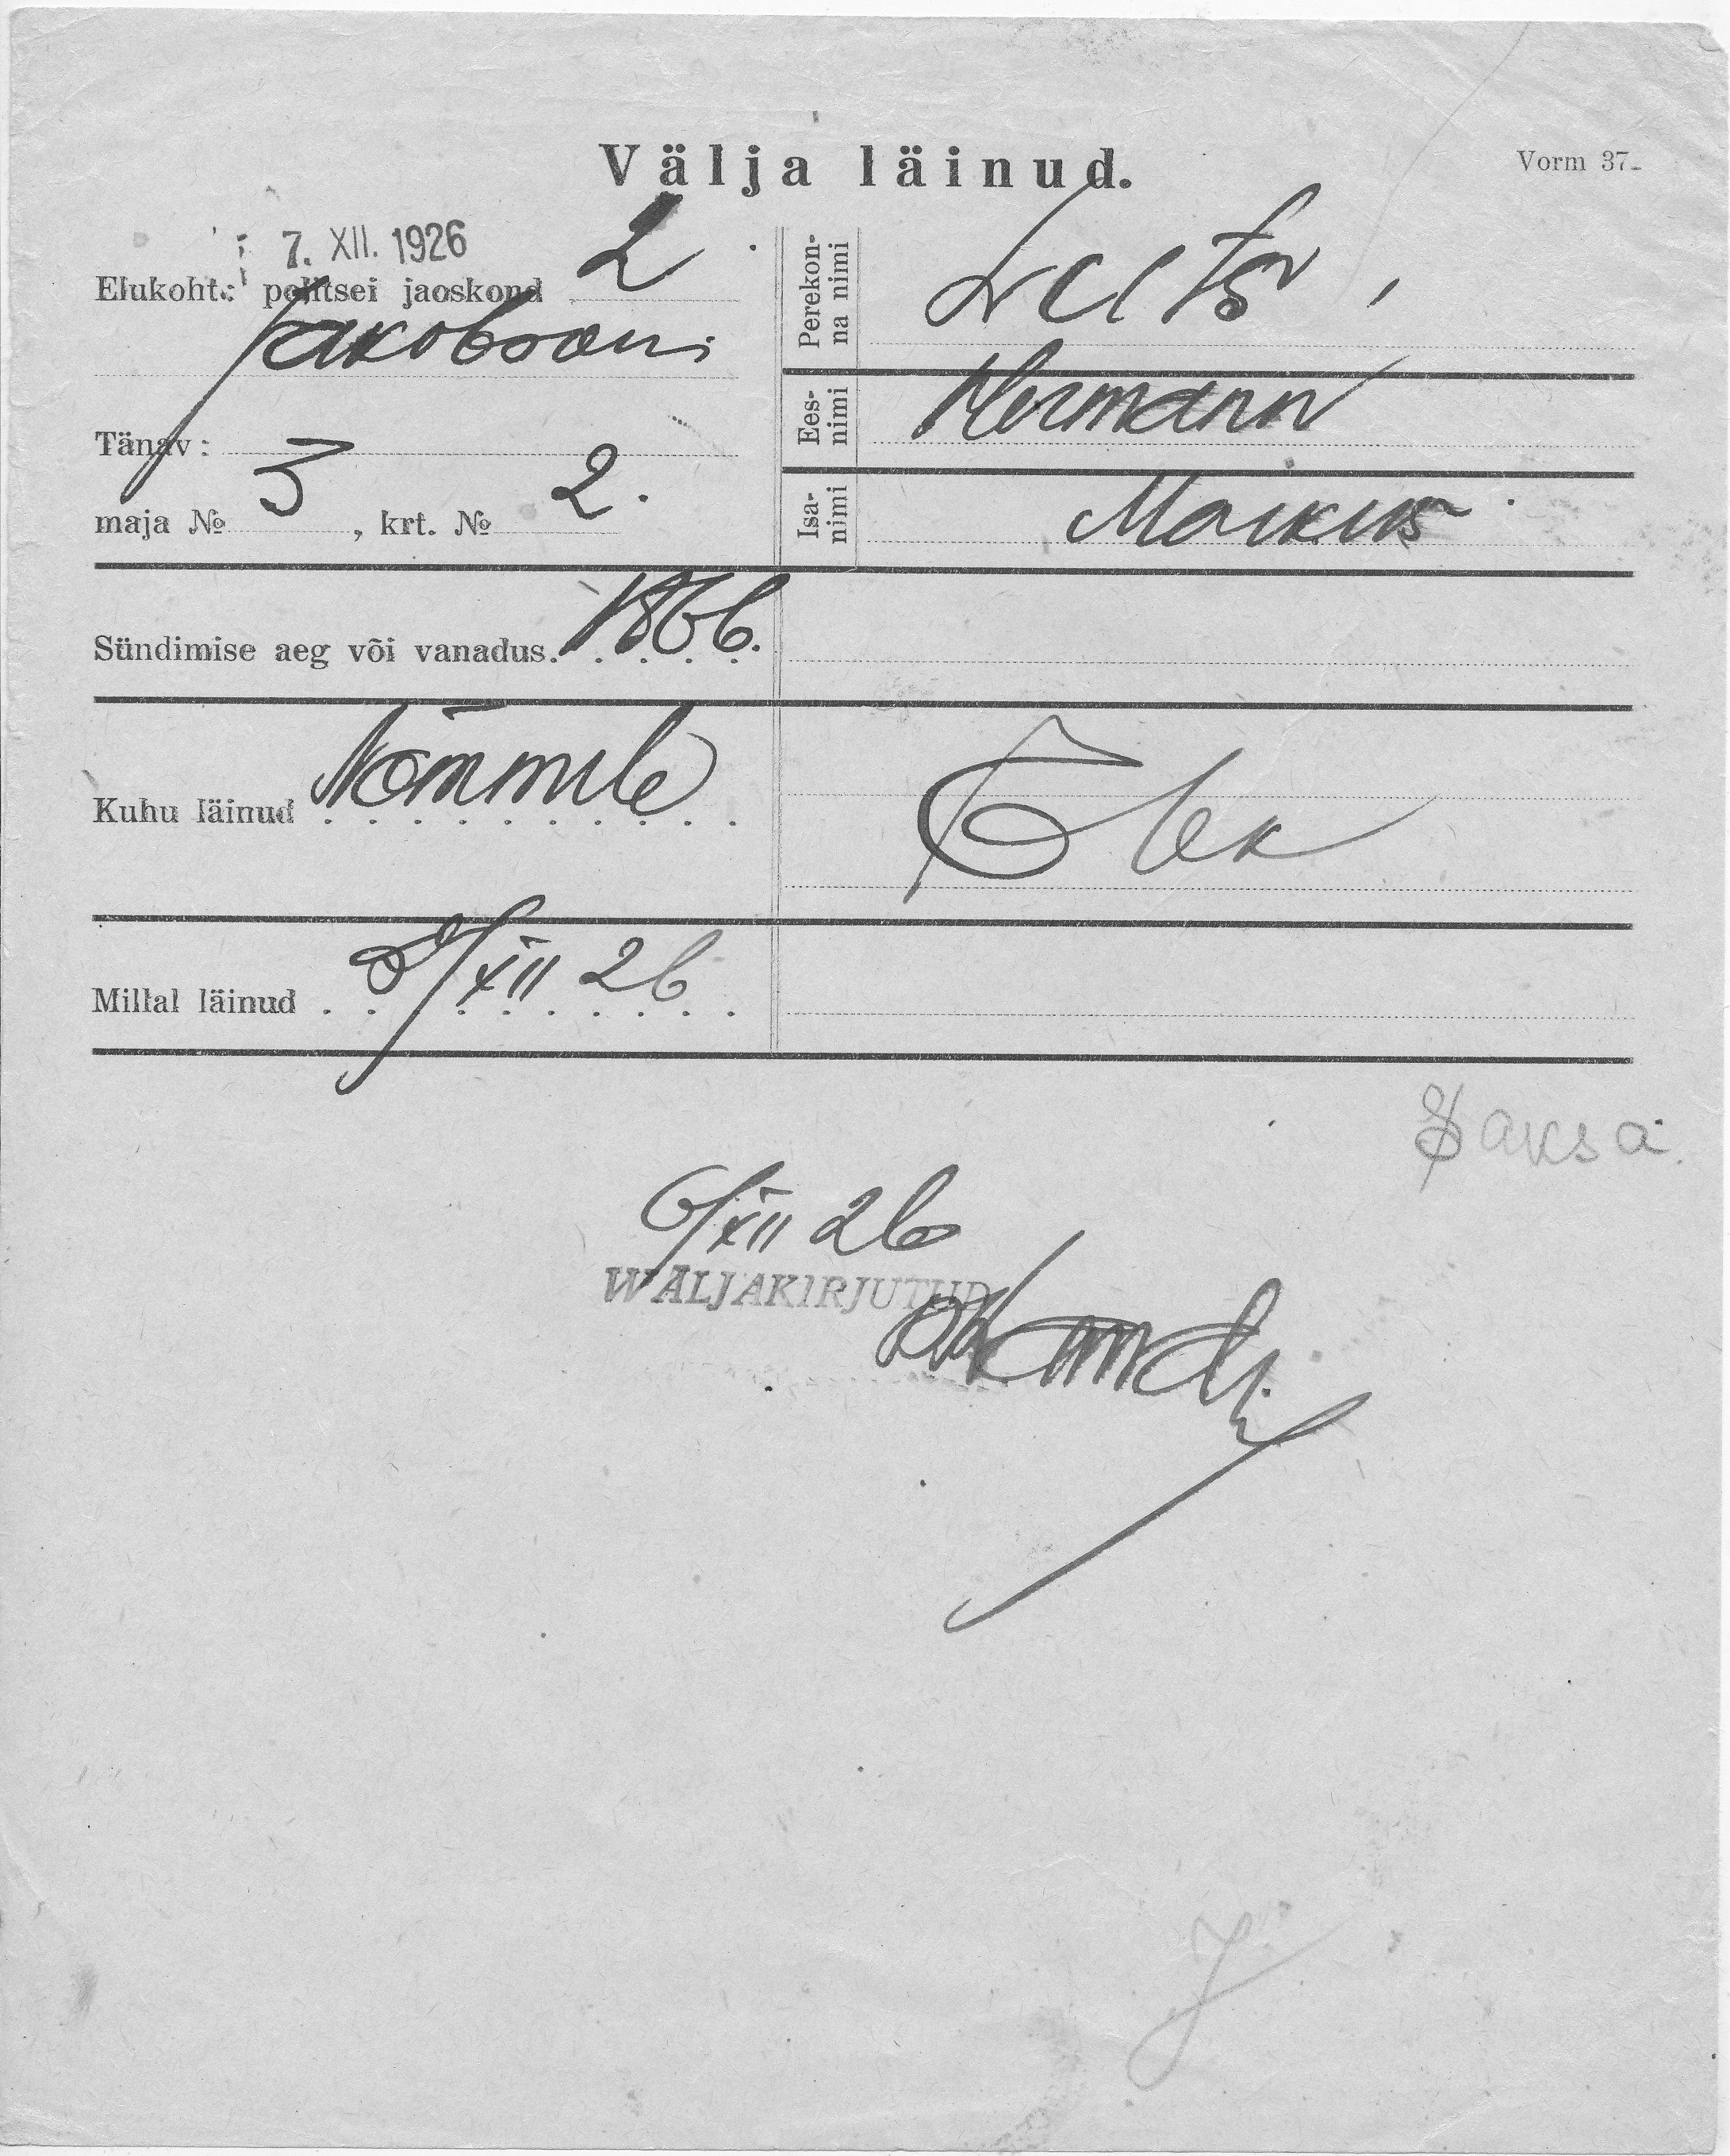 Välja läinud.
Vorm 37.
7. XII. 1926
Elukoht: politsei jaoskond 2
Jakobsoni
Tänav:
maja № 3, krt. № 2.
Perekonna nimi
Eesnimi Hermann
Isanimi Markus
Sündimise aeg või vanadus. 1866.
Kuhu läinud Nõmmele
Millal läinud 5/XII 26
Saksa.
6/XII 26
WÄLJAKIRJUTUD